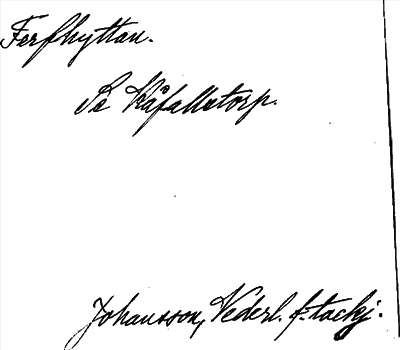 Ferfhyttan.
Se Kåfallstorp.
Johansson, Nederl. f. tackj.